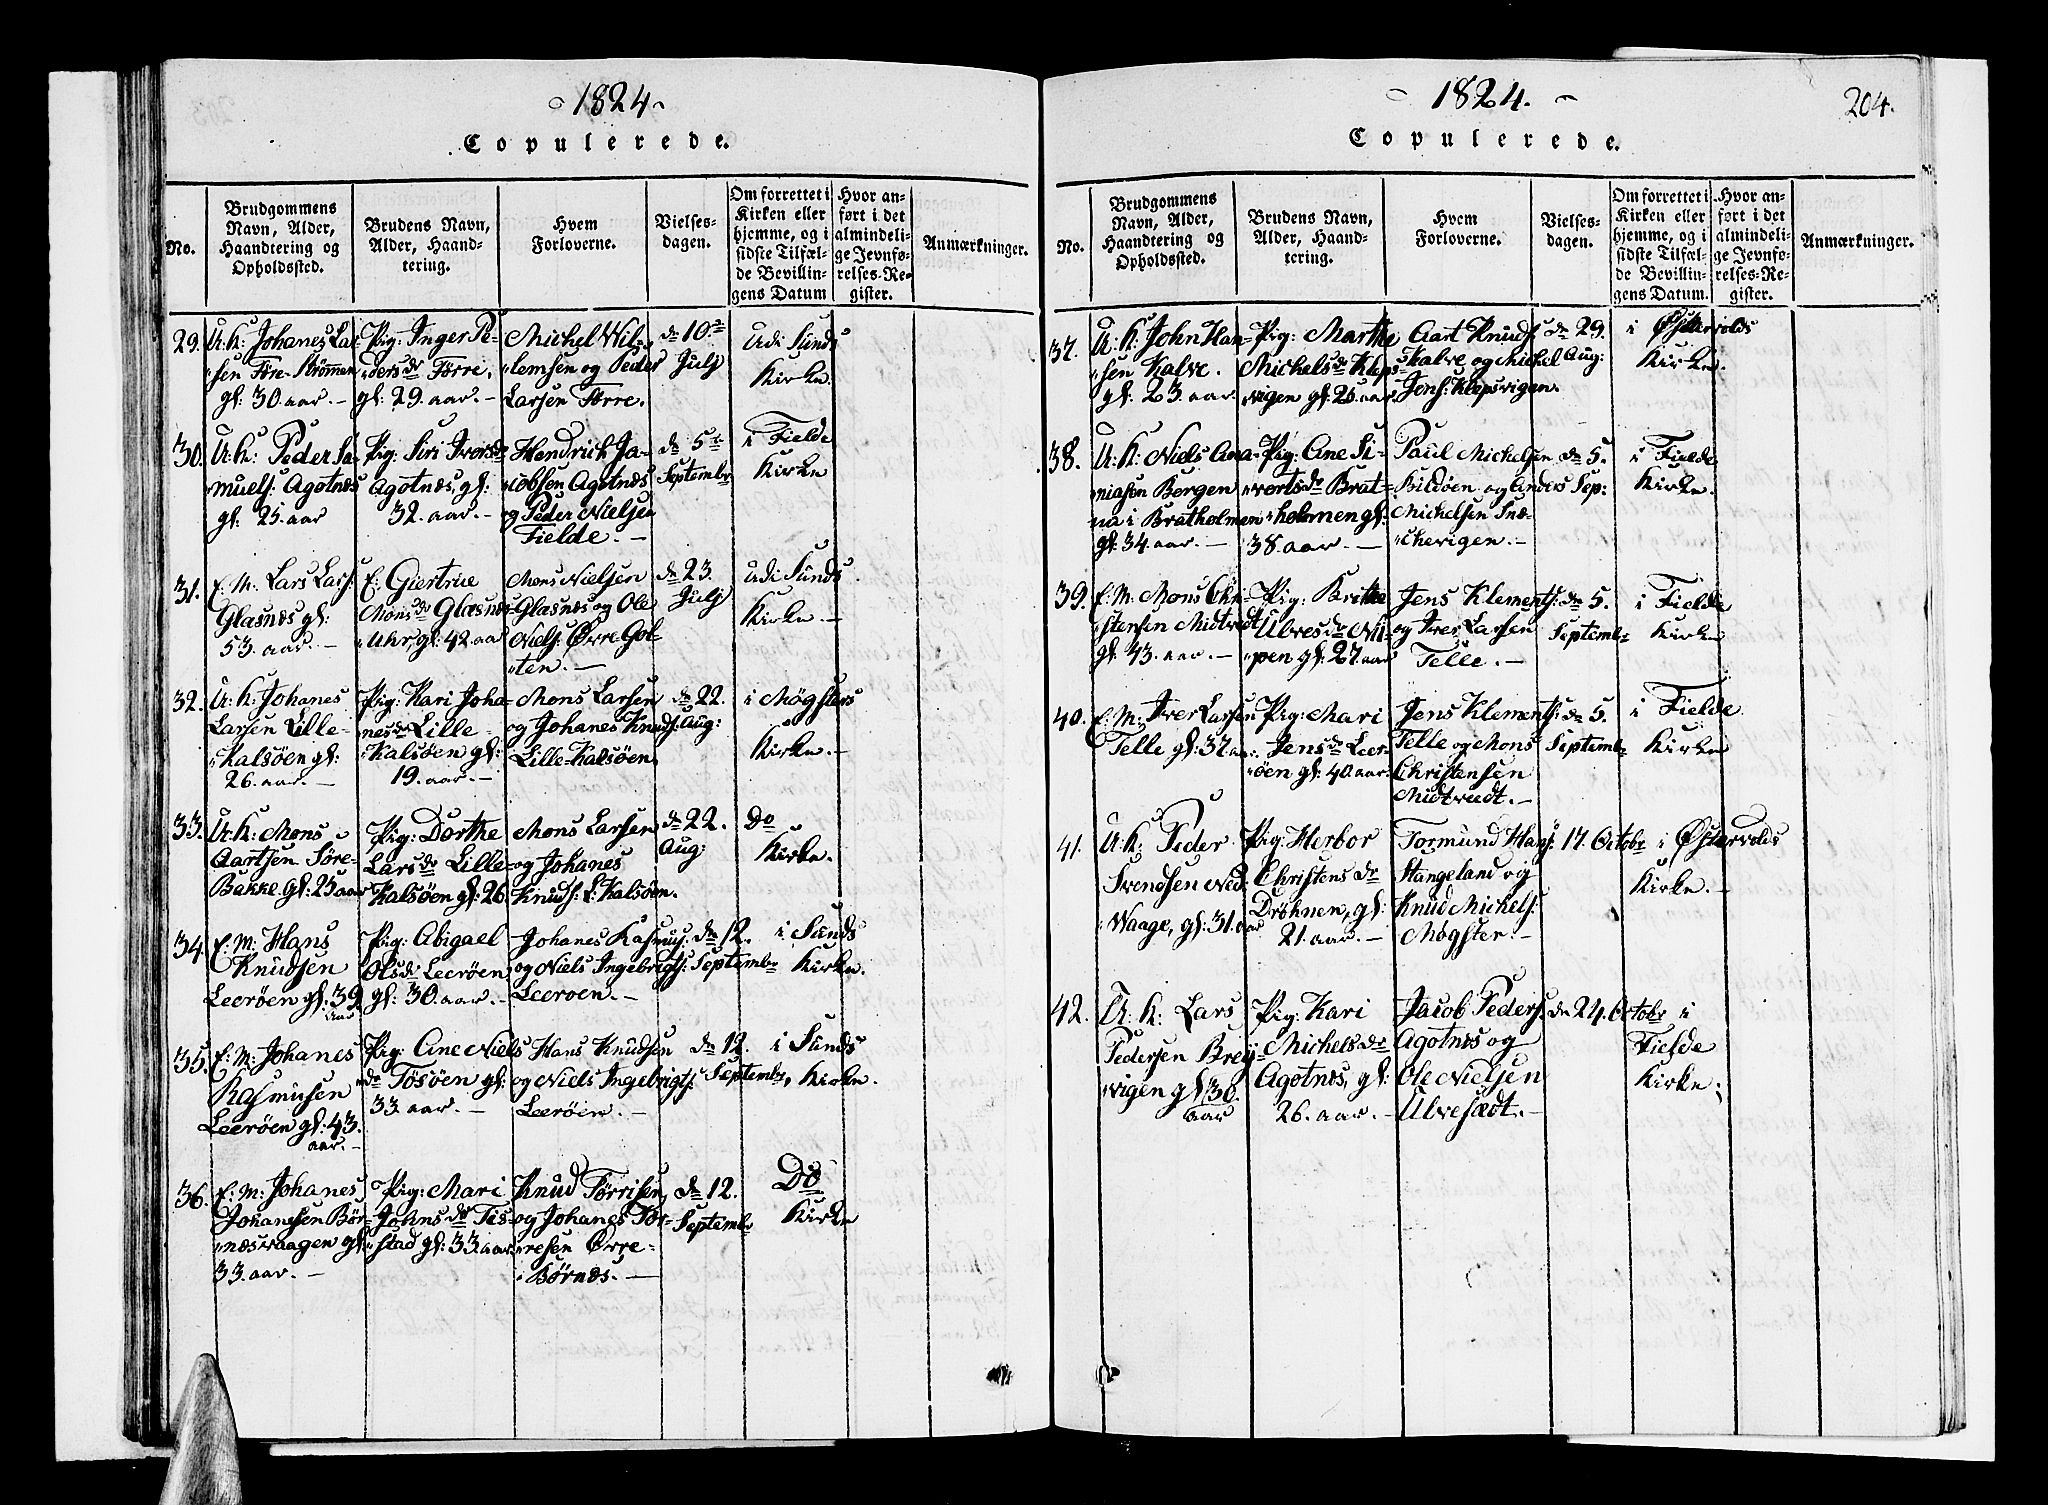 1824
Copulerede.
No.
Brudgommens
Navn, Alder,
Haandtering og
Opholdssted.
Brudens Navn,
Alder, Haand-
tering.
Hvem
Forloverne.
Vielses-
dagen.
Om forrettet i
Kirken eller
hjemme, og i
sidste Tilfæl-
de Bevillin-
gens Datum
Hvor an-
ført i det
almindeli-
ge Jevnfø-
relses-Re-
gister.
Anmærkninger.
29.
U: K: Johanes La-
senFøre-Strømmen
gl: 30. aar. -
Pig: Inger Pe-
ders dr Førre,
gl: 29. aar. -
Michel Wil-
lemsen og Peder
Larsen Førre.
dn 10de
Julj
Udi Sunds
Kirke.
30.
U: K: Peder Sa-
muels: Agotnæs
gl: 25. aar
Pig: Siri Ivers dr
Agotnæs, gl:
32. aar. -
Hendrich Ja-
cobsen Agotnæs
og Peder Nielsen
Fielde. -
dn 5te
Septembr
i Fielde
Kirke
31.
E: M: Lars Lars:
Glasnæs gl:
53. aar. -
E: Giertrue
Mons dr Glasnæs-
Uhr, gl: 42 aar
Mons Nielsen
Glasnæs og Ole
Niels: Ørre-Gol-
ten. -
dn 23.
Julj
Udi Sunds
Kirke. -
32.
U: K: Johanes
Larsen Lille-
Kalsøen gl:
26. aar. -
Pig: Kari Joha-
nes dr Lille-
Kalsøen gl:
19. aar. -
Mons Larsen
og Johanes Knuds:
Lille-Kalsøen.
dn 22.
Aug:
i Møgsters
Kirke. -
33.
U: K: Mons
Aartsen Søre-
Bakke gl: 25 aar
Pig: Dorthe
Lars dr Lille-
Kalsøen gl: 26
Mons Larsen
og Johanes
Knuds: L: Kalsøen.
dn 22.
Aug:
Do
Kirke.
34.
E: M: Hans
Knudsen
Leerøen gl: 39.
aar
Pig: Abigael
Ols dr Leerøen
gl: 30. aar. -
Johanes Rasmus:
og Niels Ingebrigts:
Leeroen. -
dn 12.
Septembr
i Sunds
Kirke.
35.
E: M: Johanes
Rasmusen
Leerøen gl: 43.
aar. -
Pig: Ane Niels
dr Tøsøen gl:
33. aar. -
Hans Knudsen
og Niels Ingebrigts:
Leerøen. -
dn 12.
Septembr,
i Sunds
Kirke.
36.
E: M: Johanes
Johanesen Bør-
næsvaagen gl:
33. aar. -
Pig: Mari
Johns dr Tes-
stad gl: 33. aar
Knud Torrisen,
og Johanes Tor-
resen Ørre-
Børnæs. -
dn 12.
Septembr
Do
Kirke
1824.
204.
Copulerede.
No.
Brudgommens
Navn, Alder,
Haandtering og
Opholdssted.
Brudens Navn,
Alder, Haand-
tering.
Hvem
Forloverne.
Vielses-
dagen.
Om forrettet i
Kirken eller
hjemme, og i
sidste Tilfæl-
de Bevillin-
gens Datum.
Hvor an-
ført i det
almindeli-
ge Jevnfø-
relses-Re-
gister.
Anmærkninger.
37.
U: K: John Han-
sen Kalve.
gl: 23. aar.
Pig: Marthe
Michels dr Kleps-
vigen gl: 25 aar
Aart Knuds:
Kalve og Michel
Jens: Klepsvigen.
dn 29.
Aug:
i Østervolds
Kirke.
38.
U: K: Niels Ana-
niasen Bergen
nu i Bratholmen
gl: 34. aar. -
Pig: Ane Si-
verts dr Brat-
holmen gl:
38. aar. -
Paul Michelsen
Bildøen og Anders
Michelsen Snæ-
kevigen. -
dn 5.
Sep:
i Fielde
Kirke.
39.
E: M: Mons Chri-
stensen Midtvedt
gl: 43. aar. -
Pig: Brithe
Ulvres dr Nii-
pen gl: 27. aar
Jens Klements:
og Iver Larsen
Telle. -
dn 5.
Septembr
i Fielde
Kirke
40.
E: M: Iver Larsen
Telle gl: 32 aar.
Pig: Mari
Jens dr Leer-
öen gl: 40. aar.
Jens Klements:
Telle og Mons
Christensen
Midtvedt. -
dn 5.
Septembr
i Fielde
Kirke
41.
U: K: Peder
Svendsen Ned-
Waage, gl: 31. aar
Pig: Herbor
Christens dr
Drøhnen, gl:
21. aar. -
Tormund Hans:
Stangeland og
Knud Michels:
Møgster. -
17. Octobr
i Østervolds
Kirke. -
42.
U: K: Lars
Pedersen Brey-
vigen gl: 30.
aar
Pig: Kari
Michels dr
Agotnæs, gl:
26. aar. -
Jacob Peders:
Agotnæs og
Ole Nielsen
Ulvesædt. -
dn 24. Octobr
i
Fielde
Kirke.